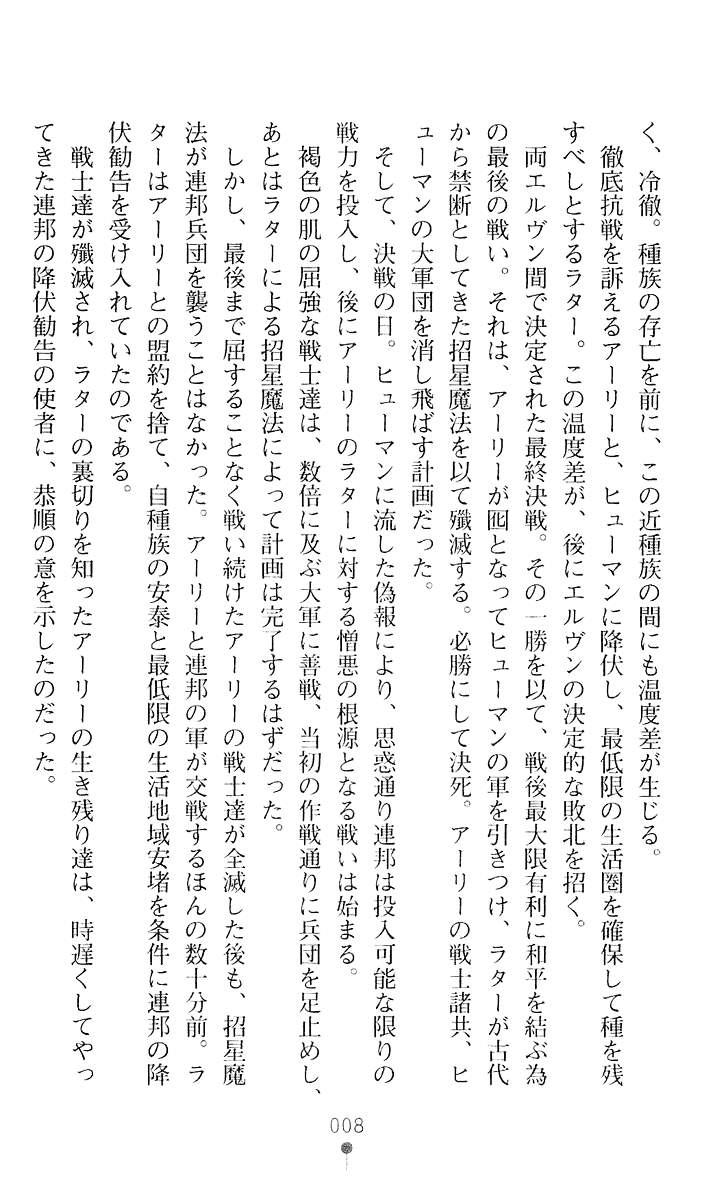 く、冷徹。種族の存亡を前に、この近種族の間にも温度差が生じる。
徹底抗戦を訴えるアーリーと、ヒューマンに降伏し、最低限の生活圏を確保して種を残
すべしとするラター。この温度差が、後にエルヴンの決定的な敗北を招く。
両エルヴン間で決定された最終決戦。その一勝を以て、戦後最大限有利に和平を結ぶ為
の最後の戦い。それは、アーリーが囮となってヒューマンの軍を引きつけ、ラターが古代
から禁断としてきた招星魔法を以て殲滅する。必勝にして決死。アーリーの戦士諸共、ヒ
ューマンの大軍団を消し飛ばす計画だった。
そして、決戦の日。ヒューマンに流した偽報により、思惑通り連邦は投入可能な限りの
戦力を投入し、後にアーリーのラターに対する憎悪の根源となる戦いは始まる。
褐色の肌の屈強な戦士達は、数倍に及ぶ大軍に善戦、当初の作戦通りに兵団を足止めし、
あとはラターによる招星魔法によって計画は完了するはずだった。
しかし、最後まで屈することなく戦い続けたアーリーの戦士達が全滅した後も、招星魔
法が連邦兵団を襲うことはなかった。アーリーと連邦の軍が交戦するほんの数十分前。ラ
ターはアーリーとの盟約を捨て、自種族の安泰と最低限の生活地域安堵を条件に連邦の降
伏勧告を受け入れていたのである。
戦士達が殲滅され、ラターの裏切りを知ったアーリーの生き残り達は、時遅くしてやっ
てきた連邦の降伏勧告の使者に、恭順の意を示したのだった。
008